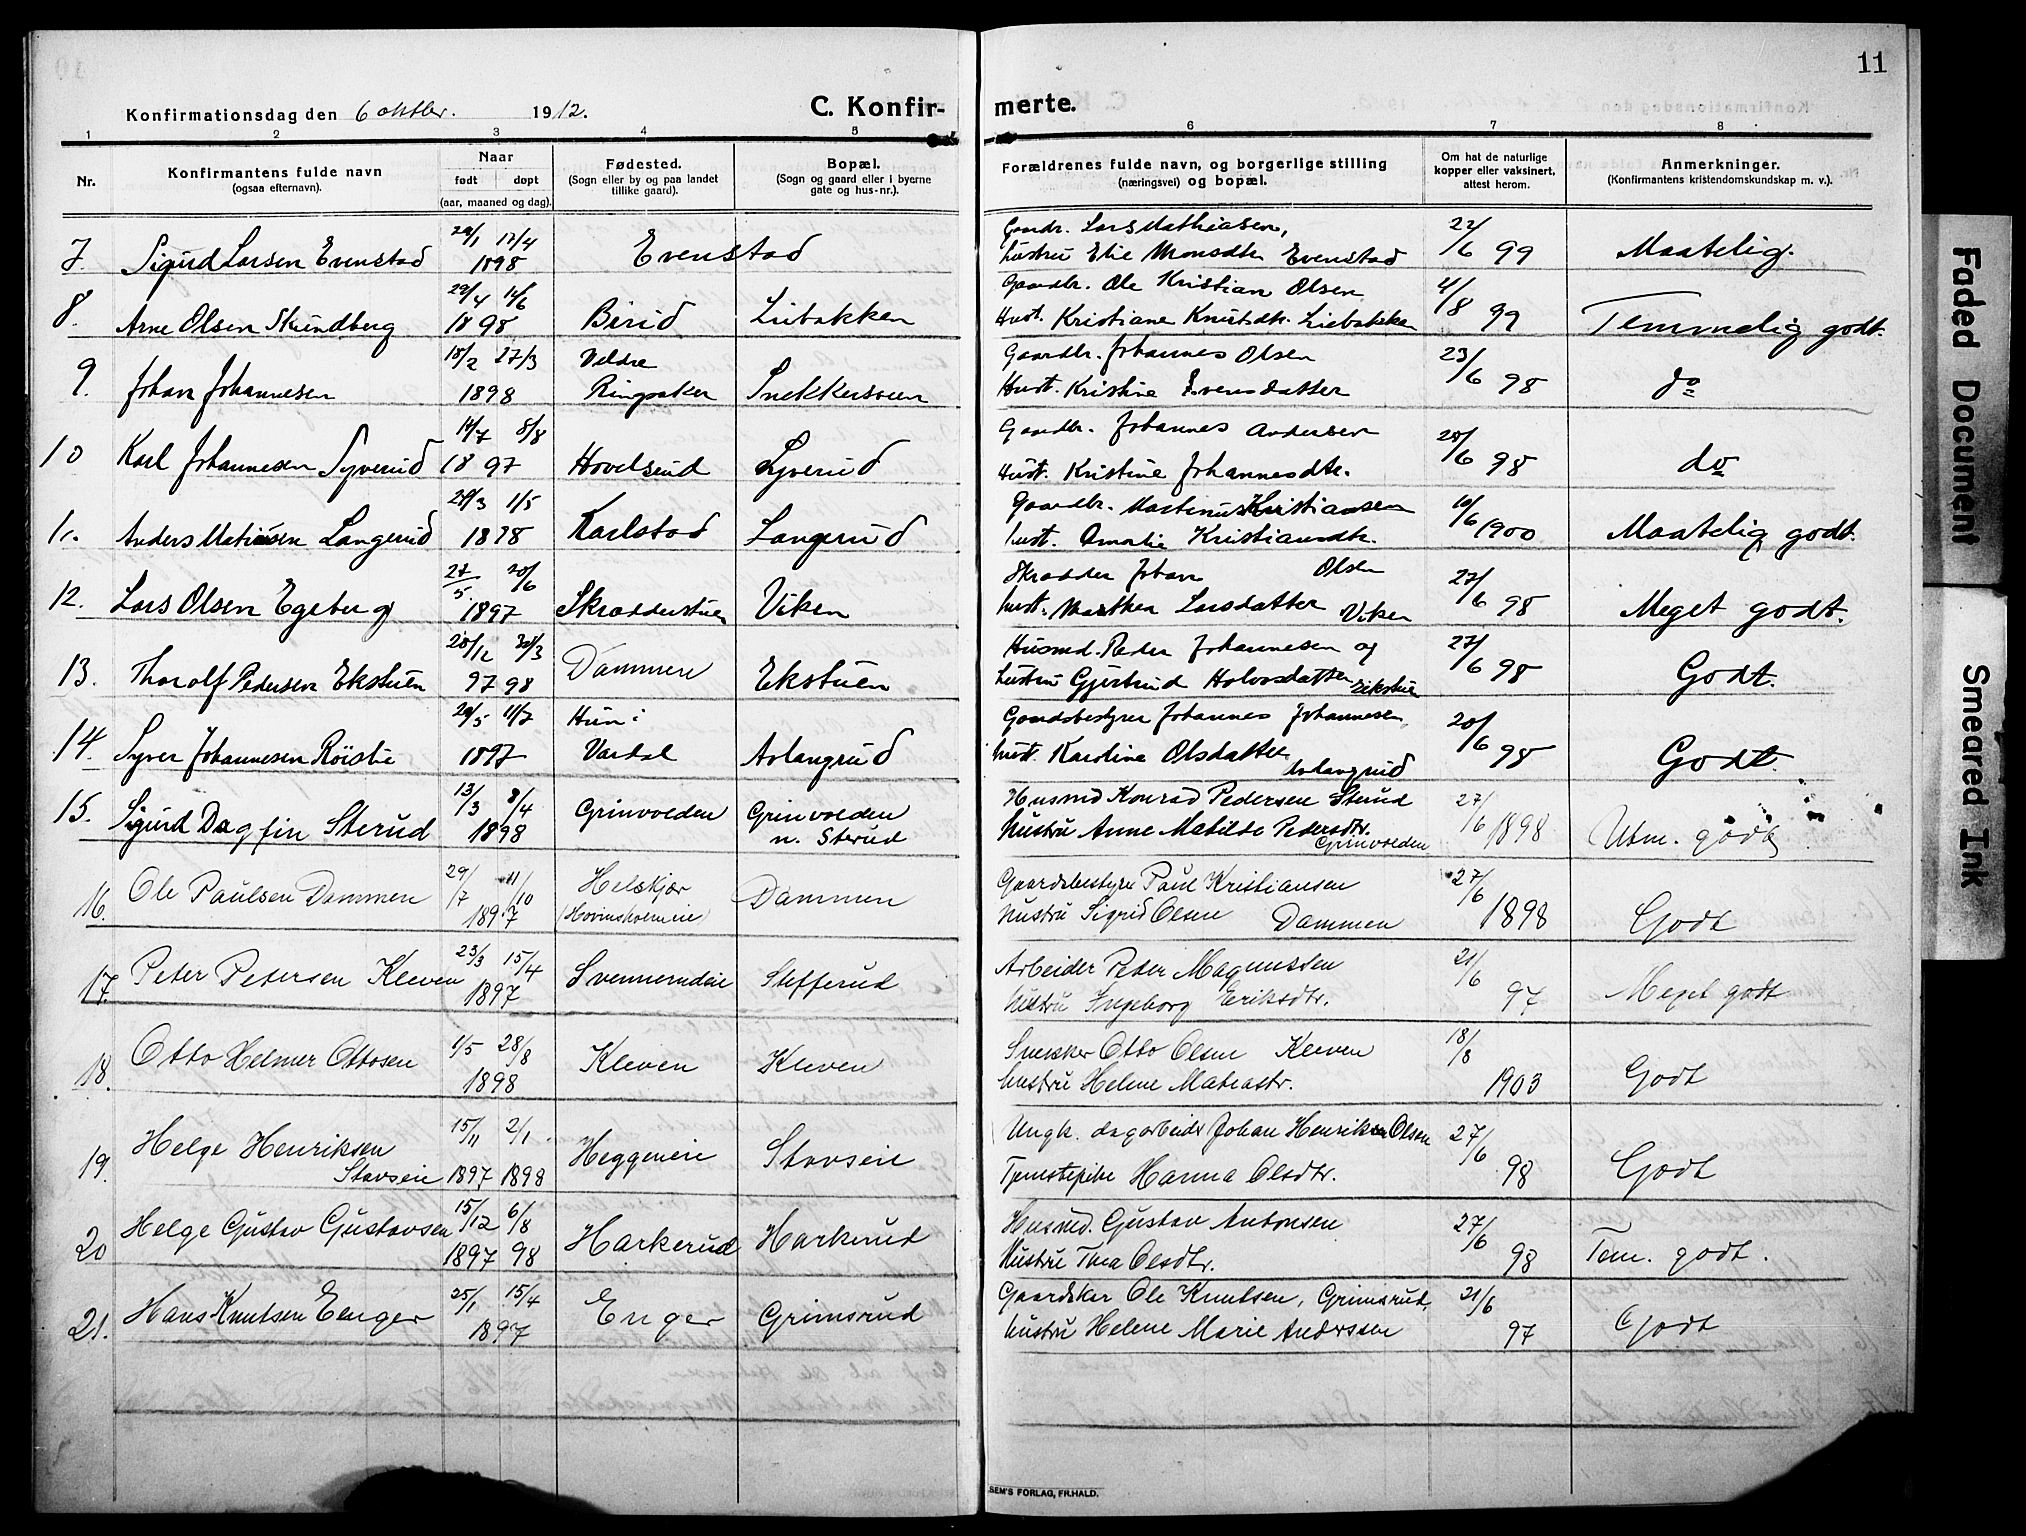 11
Konfirmationsdag den 6 oktbr. 1912.
C. Konfir-
merte.
1 2 3 4 5 6 7 8
Nr.
Konfirmantens fulde navn
(ogsaa efternavn).
Naar
født døpt
(aar, maaned og dag).
Fødested.
(Sogn eller by og paa landet
tillike gaard).
Bopæl.
(Sogn og gaard eller i byerne
gate og hus-nr.).
Forældrenes fulde navn, og borgerlige stilling
(næringsvei) og bopæl.
Om hat de naturlige
kopper eller vaksinert,
attest herom.
Anmerkninger.
(Konfirmantens kristendomskundskap m. v.).
7. Sigurd Larsen Evenstad 29/1 17/4 1898 Evenstad
Gaardbr. Lars Mathiasen, 22/6 99 Maatelig.
hustru Elie Monsdtr Evenstad
8. Arne Olsen Skundberg 29/4 14/6 1898 Birid Liebakken
Gaardbr. Ole Kristian Olsen 4/8 99 Temmelig godt.
Hust. Kristiane Knutsdtr. Liebakken
9. Johan Johannesen 18/2 27/3 1898 Veldre Ringsaker Snekkersveen
Gaardbr. Johannes Olsen 23/6 98 do
Hust. Kristine Evensdatter
10 Karl Johannesen Syverud 14/7 8/8 1897 Hovelsrud Syverud
Gaardbr. Johannes Andersen 28/6 98 do
Hust. Kristine Johannesdtr.
11. Anders Matinsen Langerud 29/3 1/5 1898 Karlstad Langerud
Gaardbr. Martinus Kristiansen 10/6 1900 Maatelig godt.
hust. Amalie Kristiansdtr.
12. Lars Olsen Egeberg 27/5 20/6 1897 Skrædderstuen Viken
Skrædder Johan Olsen 27/6 98 Meget godt.
hust. Marthea Larsdatter Viken
13. Thoralf Pedersen Ekstuen 28/12 97 30/3 98 Dammen Ekstuen
Husmd. Peder Johannesen og 27/6 98 Godt.
hustru Gjertrud Halvorsdatter Ekstuen
14. Syver Johannesen Röistie 29/5 11/7 1897 Hun i Vardal Avlangrud
Gaardsbestyrer Johannes Johannesen 20/6 98 Godt.
hust. Karoline Olsdatter Avlangrud
15. Sigurd Dagfin Sterud 13/3 8/4 1898 Grinvolden Grinvolden
n. Sterud
Husmd Konrad Pedersen Sterud 27/6 1898 Utm. godt
hustru Anne Matilde Pedersdtr. Grinvolden
16. Ole Paulsen Dammen 29/7 11/10 1897 Helskjær Dammen
(Hovinsholmeie)
Gaardsbestyrer Paul Kristiansen 27/6 1898 Godt
hustru Sigrid Olsen Dammen
17. Peter Petersen Kleven 23/3 15/4 1897 Svennerudeie Stefferud
Arbeider Peder Magnussen 21/6 97 Meget godt
hustru Ingeborg Eriksdtr.
18. Otto Helmer Ottosen 1/5 28/8 1898 Kleven Kleven
Snekker Otto Olsen Kleven 18/8 1903 Godt
hustru Helene Mateastr.
19. Helge Henriksen
Stavseie 15/11 1897 2/1 1898 Heggeneie Stavseie
Ungk. dagarbeider Johan Henriksen Olsen 27/6 98 Godt
Tjenestepike Hanna Olsdtr.
20 Helge Gustav Gustavsen 15/12 1897 6/8 98 Harkerud Harkerud
Husmd. Gustav Antonsen 27/6 98 Tem. godt.
hustru Thea Olsdtr.
21. Hans Knutsen Enger 25/1 15/4 1897 Enger Grimsrud
Gaardskar Ole Knutsen, Grimsrud, 21/6 97 Godt
hustru Helene Marie Anderssen
SEM'S FORLAG, FR.HALD.
Faded Document
Smeared Ink